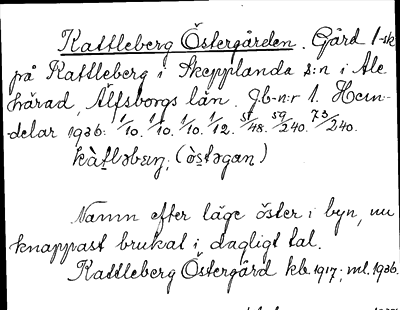 Kattleberg Östergården. Gård 1-sk
på Kattleberg i Skepplanda s:n i Ale
härad, Älfsborgs län. Jb-n:r 1. Hem-
delar 1936: 1/10. 1/10. 1/10. 1/12. 51/48. 59/240. 73/240.
kàt̯ləbæry, (òs̯təgan)
Namn efter läge öster i byn, nu
knappast brukat i dagligt tal.
Kattleberg Östergård kb. 1917; ml. 1936.